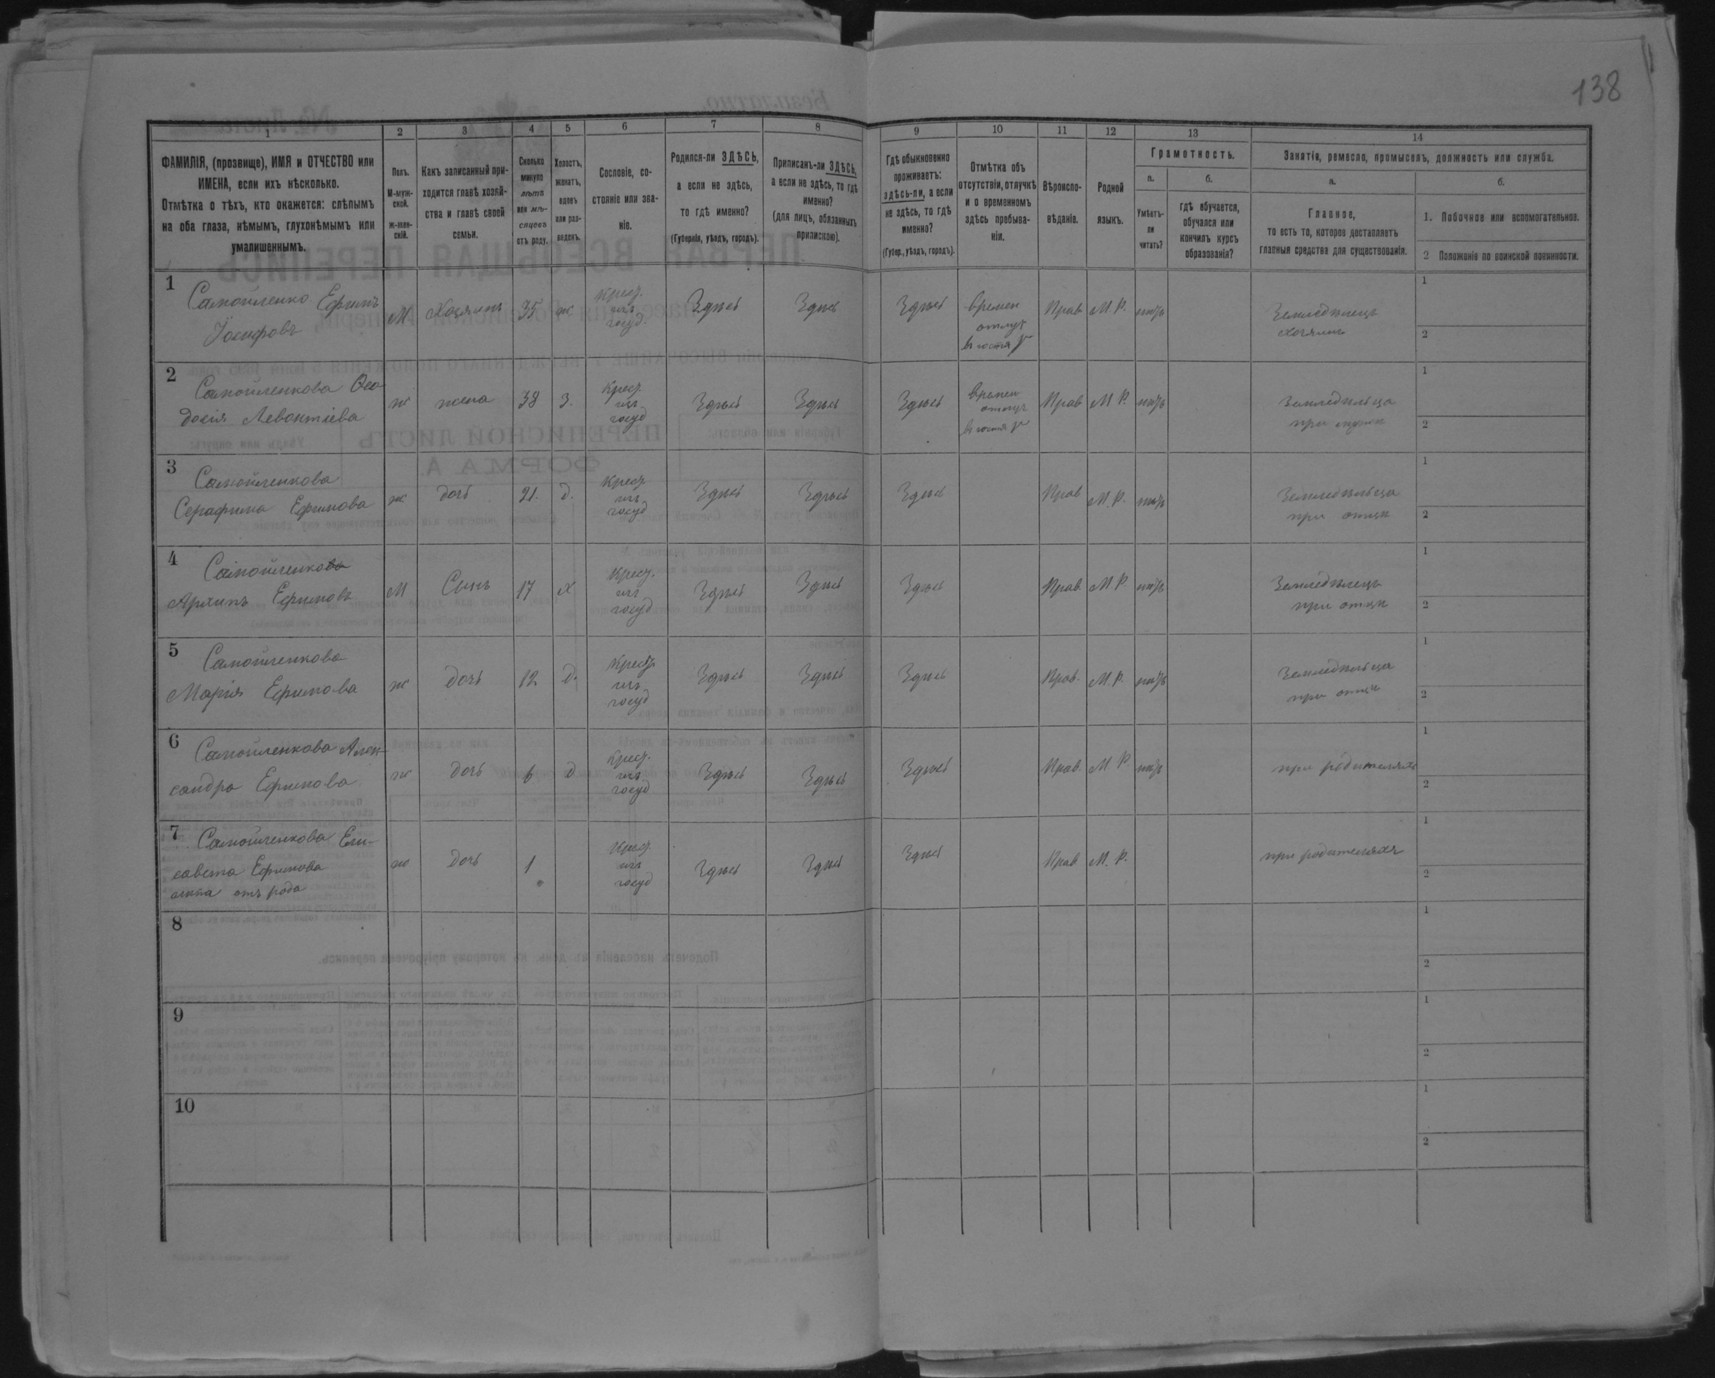 138
1 2 3 4 5 6 7 8 9 10 11 12 13 14
ФАМИЛІЯ, (прозвище), ИМЯ и ОТЧЕСТВО или
ИМЕНА, если ихъ нѣсколько.
Отмѣтка о тѣхъ, кто окажется: слѣпымъ
на оба глаза, нѣмымъ, глухонѣмымъ или
умалишеннымъ.
Полъ.
М-муж-
ской.
Ж-жен-
скій.
Какъ записанный при-
ходится главѣ хозяй-
ства и главѣ своей
семьи.
Сколько
минуло
лѣтъ
или мѣ-
сяцевъ
отъ роду.
Холостъ,
женатъ,
вдовъ
или раз-
веденъ.
Сословіе, со-
стояніе или зва-
ніе.
Родился-ли ЗДѢСЬ,
а если не здѣсь,
то гдѣ именно?
(Губернія, уѣздъ, городъ).
Приписанъ-ли ЗДѢСЬ,
а если не здѣсь, то гдѣ
именно?
(для лицъ, обязанныхъ
припискою).
Гдѣ обыкновенно
проживаетъ:
здѣсь-ли, а если
не здѣсь, то гдѣ
именно?
(Губер., уѣздъ, городъ).
Отмѣтка объ
отсутствіи, отлучкѣ
и о временномъ
здѣсь пребыва-
ніи.
Вѣроиспо-
вѣданіе.
Родной
языкъ.
Грамотность.
а.
Умѣетъ-
ли
читать?
б.
гдѣ обучается,
обучался или
кончилъ курсъ
образованія?
Занятія, ремесло, промыселъ, должность или служба.
а.
Главное,
то есть то, которое доставляетъ
главныя средства для существованія.
б.
1. Побочное или вспомогательное.
2 Положеніе по воинской повинности.
1 Самойленко Ефимъ
Іосифовъ М Хозяинъ 35 ж Крест. изъ госуд. Здѣсь Здѣсь Здѣсь Времен Прав М. Р. Земледѣлецъ
хозяинъ
1
2
2 Самойленкова Ѳео
досія Леонтіева ж жена 38 З. Крест изъ госуд Здѣсь Здѣсь Здѣсь Времен Прав М. Р. Земледѣлица
при мужѣ
1
2
3 Самойленкова
Серафима Ефимова ж дочь 21. д. Крест изъ госуд Здѣсь Здѣсь Здѣсь Прав М. Р. Земледѣлица
при отцѣ
1
2
4 Самойленкова
Ефимовъ М Сынъ 17 х Крест. изъ госуд Здѣсь Здѣсь Здѣсь Прав М. Р. Земледѣлецъ
при отцѣ
1
2
5 Самойленкова
Марія Ефимова ж дочь 12 д. Крест изъ госуд Здѣсь Здѣсь Здѣсь Прав. М. Р. Земледѣлица
при отцѣ
1
2
6 Самойленкова Алек-
сандра Ефимова ж дочь 6 д Крест. изъ госуд Здѣсь Здѣсь Здѣсь Прав. М. Р при родителяхъ
1
2
7 Самойленкова Ели-
савета Ефимова
отъ рода ж дочь 1 Крест изъ госуд Здѣсь Здѣсь Здѣсь Прав М. Р. при родителяхъ
1
2
8
1
2
9
1
2
10
1
2